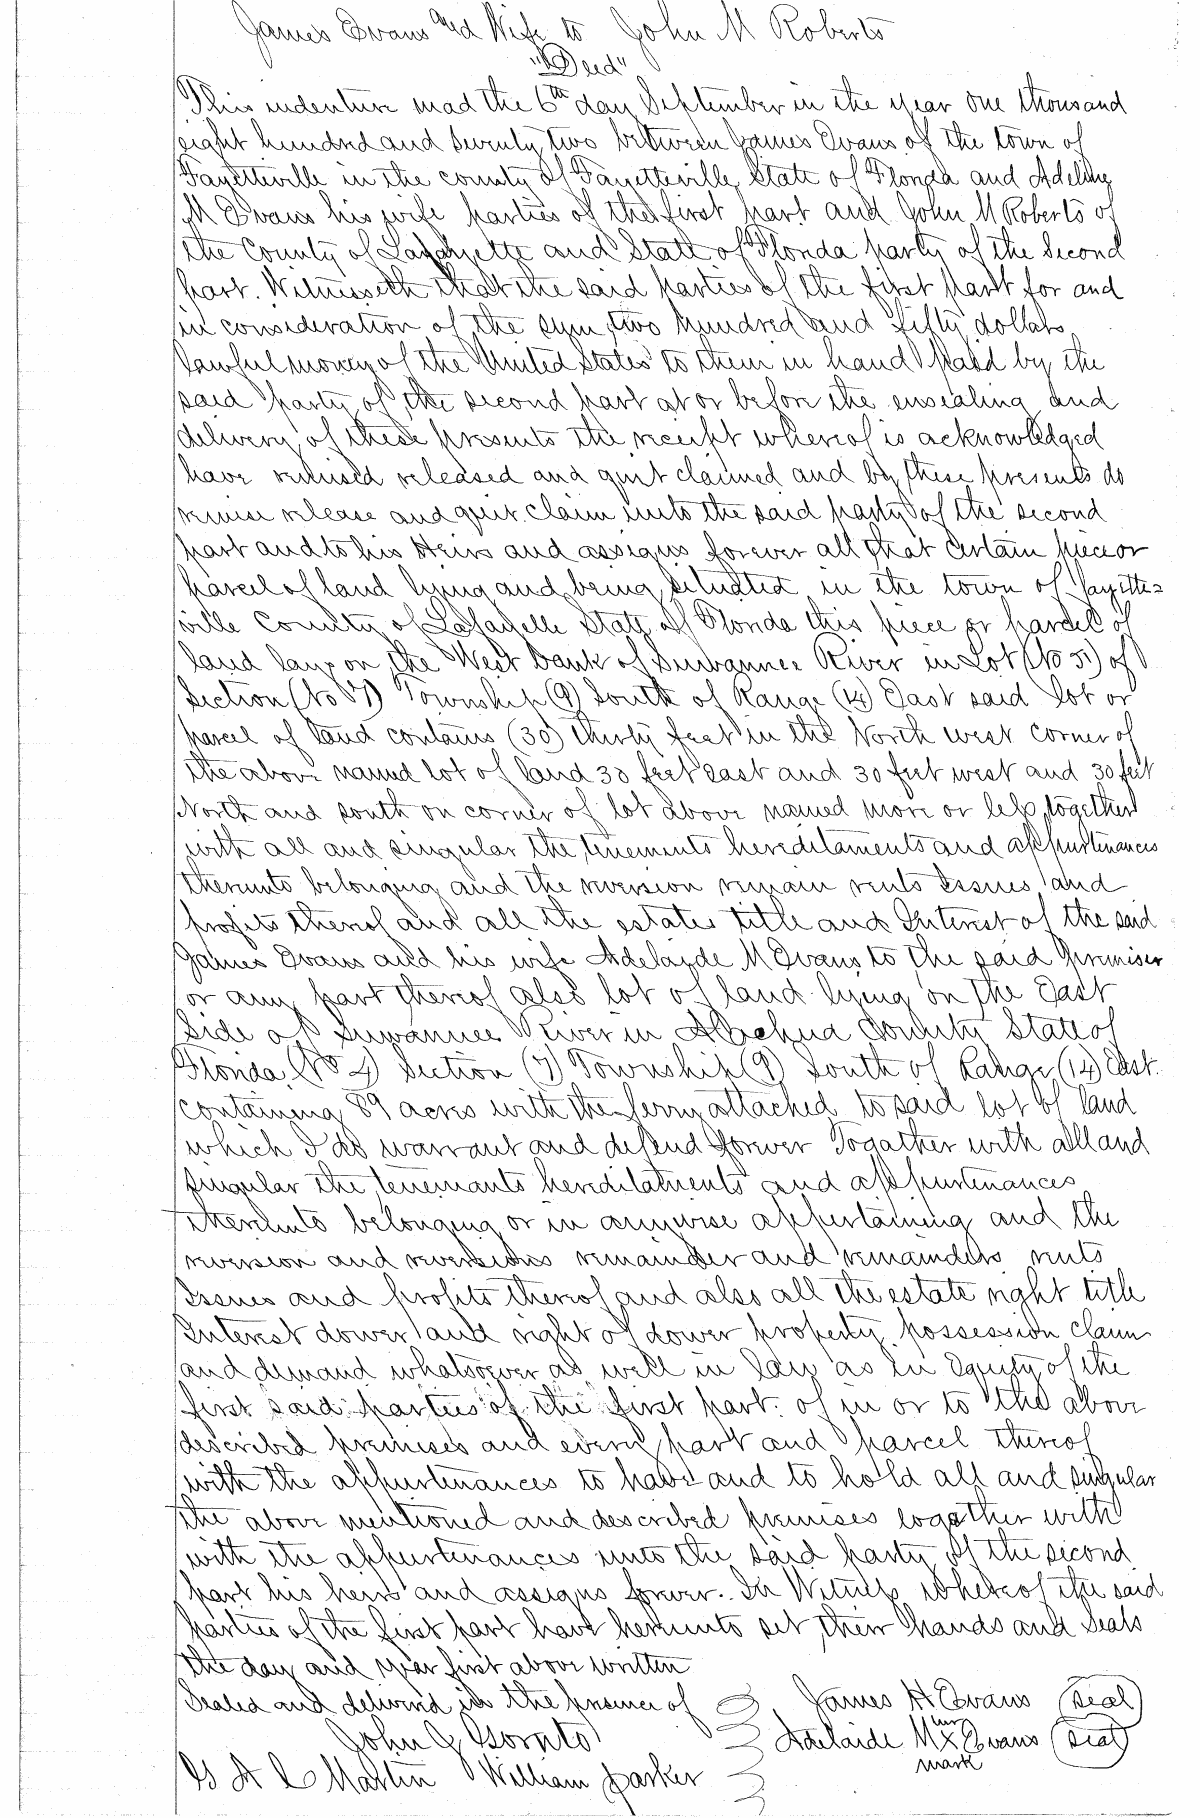 James Evans and Wife to John M Roberts
"Deed"
This indenture mad the 6th day September in the year one thousand
eight hundred and seventy two between James Evans of the town of
Fayetteville in the county of Fayetteville State of Florida and Adeline
M Evans his wife parties of the first part and John M Roberts of
the County of Lafayette and State of Florida party of the Second
part. Witnesseth that the said parties of the first part for and
in consideration of the sym two hundred and fifty dollars
lawful money of the United States to them in hand paid by the
said party of the second part at or before the ensealing and
delivery of these presents the receipt whereof is acknowledged
have remised released and quit claimed and by these presents do
remise release and quit claim unto the said party of the second
part and to his Heirs and assigns forever all that certain piece or
parcel of land lying and being situated in the town of Fayette=
ville County of Lafayette State of Florida this piece or parcel of
land lays on the West bank of Suwannee River in Lot (No 5) of
Section (No 7) Township (9) South of Range (14) East said lot or
parcel of land contains (30) thirty feet in the North west corner of
the above named lot of land 30 feet east and 30 feet west and 30 feet
North and south on corner of lot above named more or less together
with all and singular the tenements hereditaments and appurtenances
thereunto belonging and the reversion remain rents Issues and
profits thereof and all the estates title and Interest of the said
James Evans and his wife Adelaide M Evans to the said Premises
or any part thereof also lot of land lying on the East
Side of Suwannee River in Alachua County State of
Florida (No 4) Section (7) Township (9) South of Range (14) East.
containing 89 acres with the ferry attached to said lot of land
which I do warrant and defend forever Together with all and
singular the tenemants hereditatments and appurtenances
thereunto belonging or in anywise appertaining and the
reversion and reversions remainder and remainders rents
Issues and profits thereof and also all the estate right title
Interest dower and right of dower property possession claim
and demand whatsoever as well in law as in Equity of the
first said parties of the first part. of in or to the above
described premises and every part and parcel thereof
with the appurtenances to have and to hold all and singular
the above mentioned and described premises together with
with the appurtenances unto the said party of the second
part his heirs and assigns forever. In Witness whereof the said
parties of the first part have hereunto set their hands and Seals
the day and year first above written
Sealed and delivered in the presence of James H Evans (Seal)
John J
her
Adelaide M X Evans (Seal)
mark
Martin William Parker